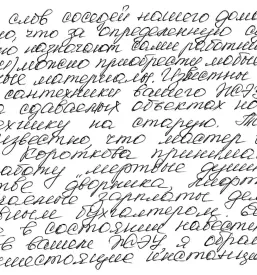 слов соседей нашего дома
но, что за определенную с
но назначают сами работни
и) можно приобрести любые
ные материалы. Известны
сантехники вашего ЖЭУ
сдаваемых объектах но
ехнику на старую. Т
известно, что мастер
Короткова принима
аботу "мертвые души"
стве дворника, лифт
чаемые зарплаты де
вным бухгалтером. В
в состоянии навести
в вашем ЖЭУ, я обра
шестоящие инстанции